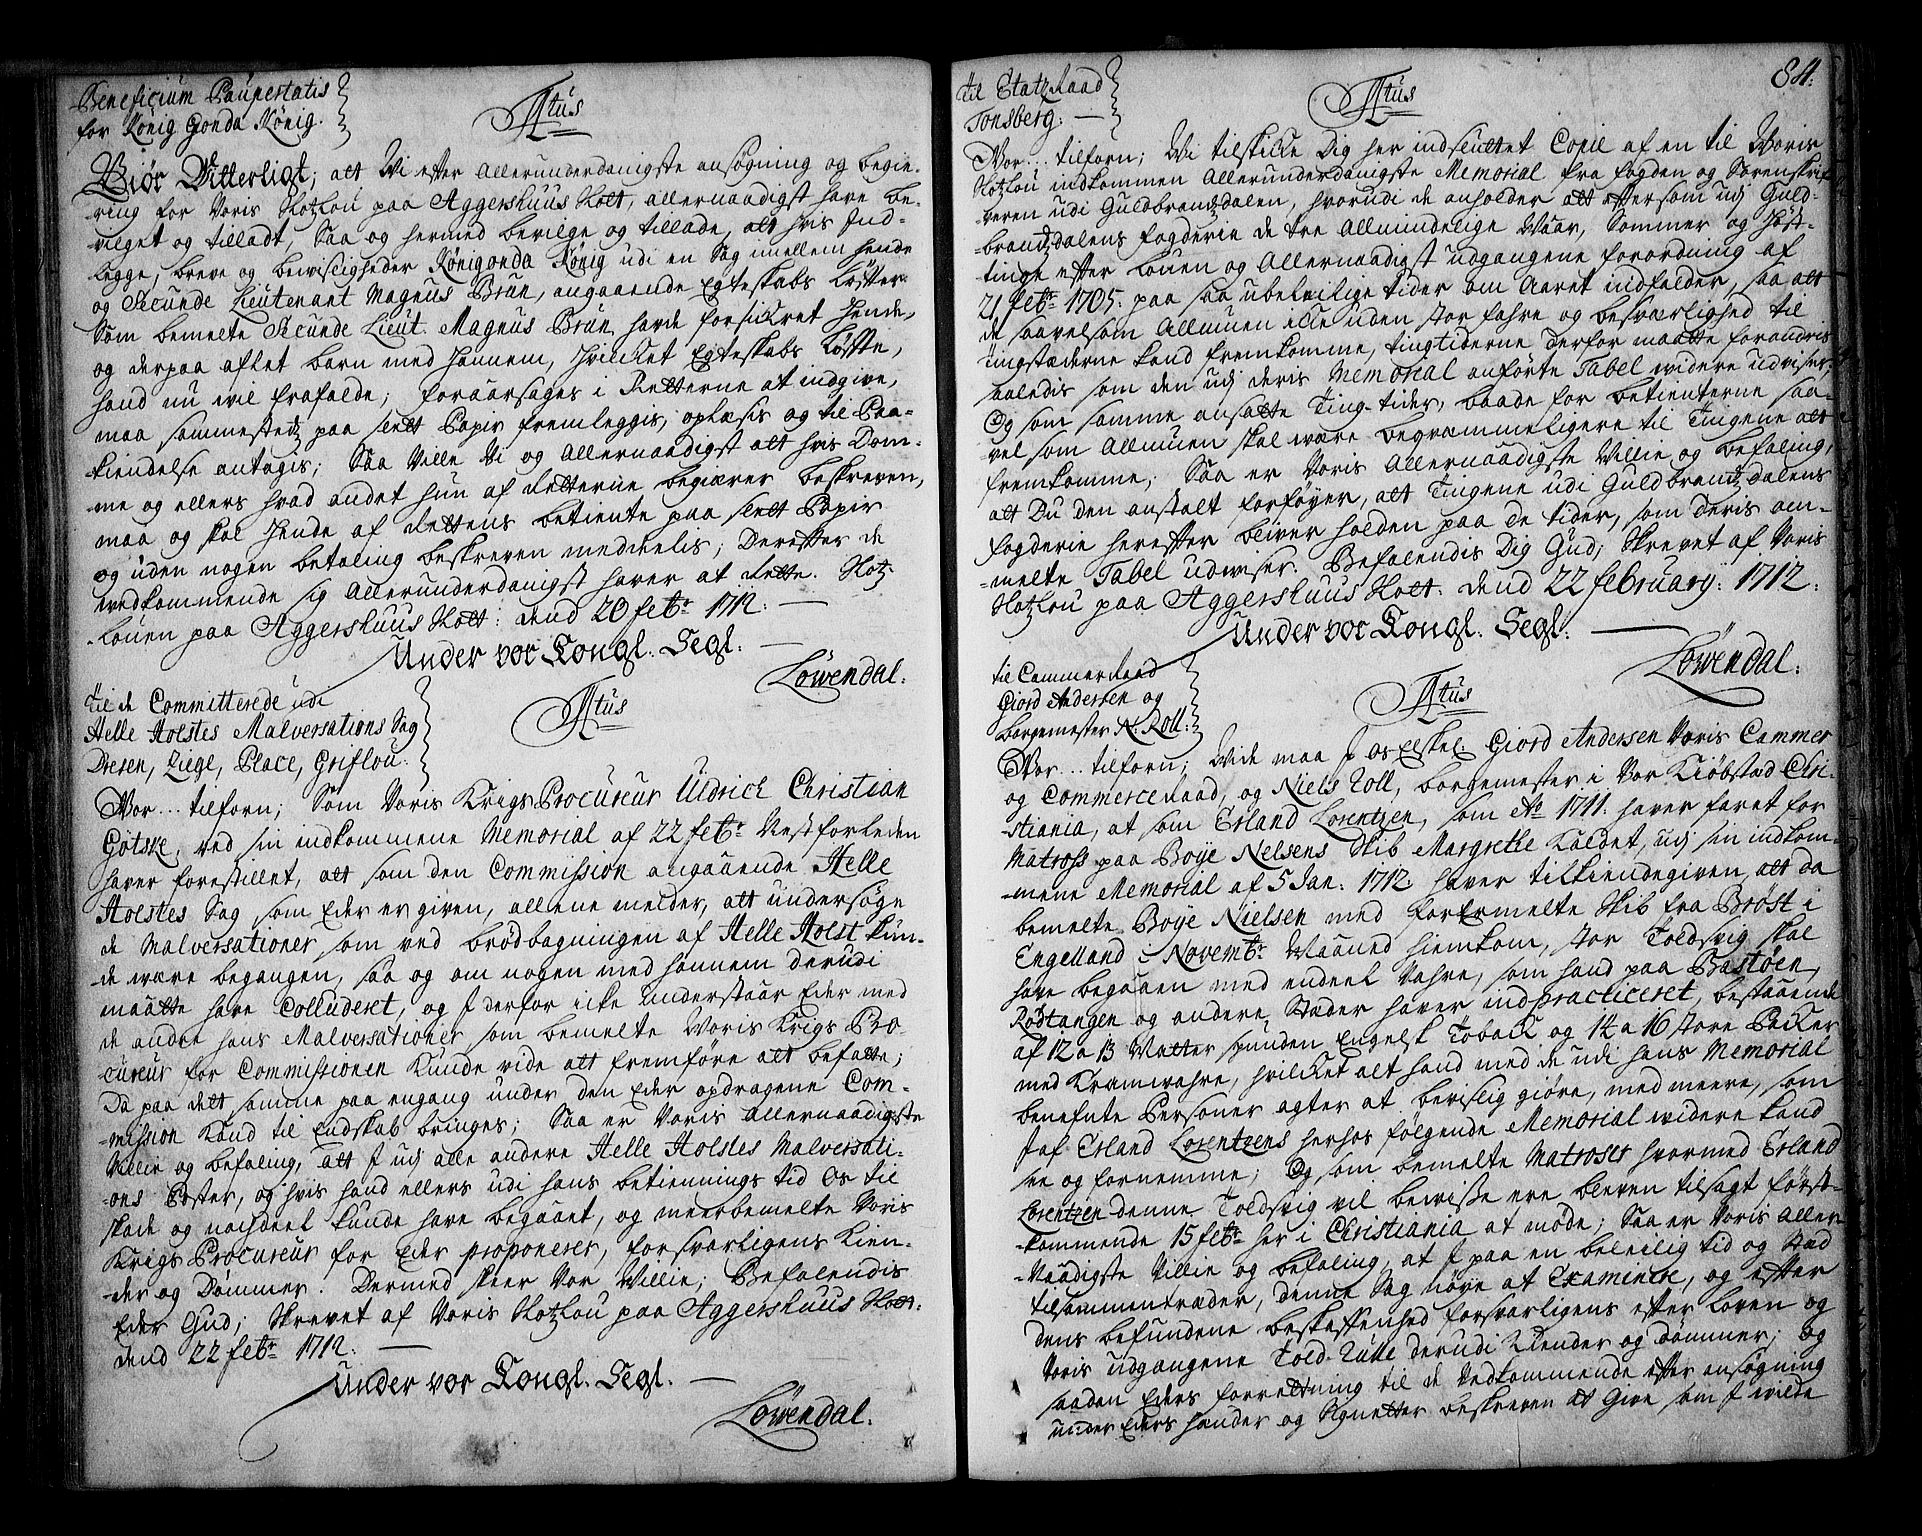 Beneficium Paupertatis
for König Gonda König.
Ftus
Giör Vitterligt; att Vi efter Allerunderdanigste ansøgning og begie-
ring for Voris Slotzlou paa Aggershuus Slott, allernaadigst have be-
vilget og tilladt, Saa og hermed bevilge og tillade, att hvis Ind-
legge, breve og bewisligheder Königonda König udi en Sag imellem hende
og Secunde Lieutenant Magnus Brun, angaaende Egteskabs Løfter
Som bemelte Secunde Lieut. Magnus Brun, havde forsickret Hende,
og derpaa aflet barn med Hannem, Hvilcket Egteskabs Løffte,
hand nu vil frafalde; foraarsages i Retterne at indgive,
maa sammestedz paa slett Papir fremleggis, oplæsis og til Paa-
kiendelse antagis; Saa Ville Vi og Allernaadigst att hvis Dom-
me og ellers hvad andet hun af Retterne begiærer beskreven,
maa og skal Hende af Rettens betiente paa slett Papir
og uden nogen betaling beskreven meddeelis; Derefter de
vedkommende sig Allerunderdanigst haver at rette. Slotz-
Louen paa Aggershuus Slott: dend 20 febr. 1712.
Under vor Kongl. Segl.
Löwendal.
Til de Committerede udi
Helle Holstes Malversations Sag
Dresen, Ziege, Place, Griflou.
Ftus
Vor... tilforn; Som Voris Krigs Procureur Uldrich Christian
Götske, ved sin indkommene Memorial af 22 febr. Nestforleden
haver forestillet, att som den Commission angaaende Helle
Holstes Sag som Eder er given, allene melder, att undersøge
de Malversationer, som ved brødbagningen af Helle Holst kun-
de være begangen, saa og om nogen med hannem derudi
maatte have Colluderet, og I derfor icke understaar Eder med
de andre hans Malversationer som bemelte Voris Krigs Pro-
cureur for Commissionen kunde vide att fremføre att befatte;
Da paa dett samme paa engang under den Eder opdragene Com-
mission kand til Endskab bringes; Saa er Voris allernaadigste
Villie og befaling, att I udj alle andere Helle Holstes Malversati-
ons Poster, og hvis hand ellers udi hans betiennings tid Os til
skade og nachdeel kunde have begaaet, og meerbemelte Voris
Krigs Procureur for Eder proponerer, forsvarligens Kien-
der og Dømmer. Dermed skeer Vor Villie; Befalendis
Eder Gud; Skrevet af Voris Slotzlou paa Aggershuus Slott.
dend 22 febr. 1712.
Under vor Kongl. Segl.
Löwendal.
84.
til Etatz Raad
Tonsberg.
Ftus
Vor... tilforn; Vi tilskicke Dig her indsluttet Copie af en til Voris
Slotzlou indkommen Allerunderdanigste Memorial fra fogden og Sorenskrif-
veren udi Guldbrandzdalen, hvorudi de anholder att eftersom udj Guld-
brandzdalens fogderie de tre Allmindelige Waar, Sommer og Høst-
tinge efter Louen og Allernaadigst udgangene forordning af
21 febr. 1705. paa saa ubeleilige tider om Aaret indfalder, saa att
de saavelsom Allmuen ille uden stor fahre og besværlighed til
tingstæderne kand fremkomme, tingtiderne derfor maatte forandris
saaledis som den udj deris Memorial anførte Tabel widere udviser;
Og som samme ansatte Ting-tider, baade for betienterne saa-
vel som Allmuen skal være beqvæmmeligere til Tingene att
fremkomme; Saa er Voris Allernaadigste Villie og befaling,
att Du den anstalt forføyer, att Tingene udi Guldbrandz Dalens
fogderie herefter bliver holden paa de tider, som deris om-
melte Tabel udviser. Befalendis Dig Gud; Skrevet af Voris
Slotzlou paa Aggershuus Slott. dend 22 february: 1712.
Under vor Kongl. Segl.
Löwendal.
til Cammerraad
Giord Andersen og
borgemester N. Roll.
Ftus
Vor... tilforn; Vide maa I Os Elskel. Giord Andersen Voris Cammer
og Commerce Raad, og Niels Roll, borgemester i Vor Kiøbstad Chri-
stiania, at som Erland Lorentzen, som Ao 1711. haver faret for
Matross paa Boye Nelsens Skib Margrethe kaldet, udj sin indkom-
mene Memorial af 5 Jan. 1712. haver tilkiendegiven, att da
bemelte Boye Nielsen med forermelte Skib fra Brøst i
Engelland i Novembr. Maaned hiemkom, stor Toldsvig skal
have begaaen med endeel Vahre, som hand paa Bastøen,
Rødtangen og andere Stæder haver indpracticeret, bestaaende
af 12 a 13 Matter spunden Engelsk Toback og 14 a 16 store Packer
med Kramvahre, hvilcket alt hand med de udi hans Memorial
benefnte Personer agter at bevislig giøre, med meere, som
I af Erland Lorentzens herhos følgende Memorial widere kand
see og fornemme; Og som bemelte Matroser hvormed Erland
Lorentzen denne Toldsvig vil bewiße ere bleven tilsagt først-
kommende 15 febr. her i Christiania at møde; Saa er Voris Aller-
Naadigste Villie og befaling, at I paa en beleilig tid og Stæd
tilsammentræder, denne Sag nøye at Examinere, og efter
dens befundene beskaffenhed forsvarligens efter Loven og
Voris udgangene Told-Rulle derudi Kiender og dømmer; og
saadan Eders forretning til de Vedkommende efter ansøgning
under Eders hænder og Signetter beskreven at Give som I vilde